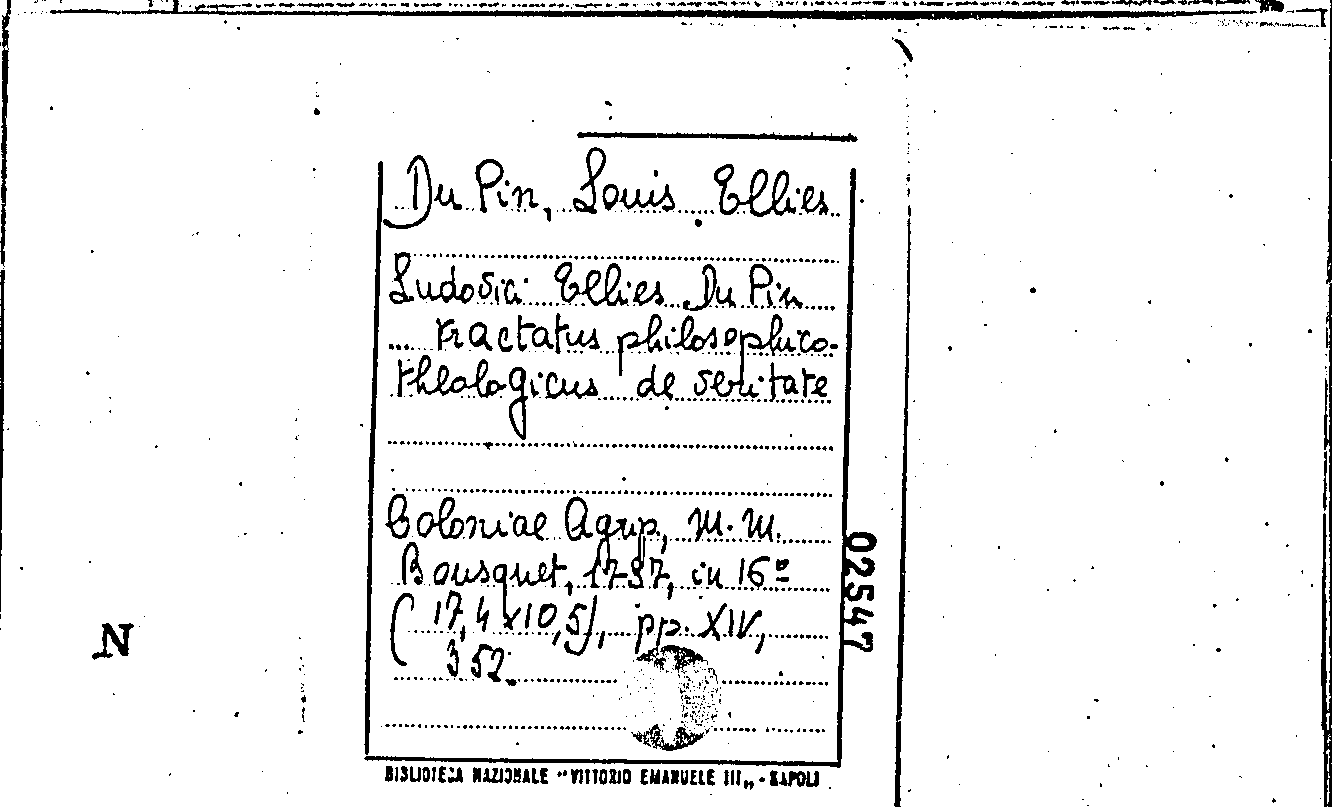 Du Pin, Louis Ellies
Ludovici Ellies Du Pin
... tractatus philosophico-
theologicus de veritate
Coloniae Agrip, M. M.
Bousquet, 1737, in 16º
(17,4 x 10,5), pp. XIV,
352.
02547
N
BIBLIOTECA NAZIONALE "VITTORIO EMANUELE III" - NAPOLI